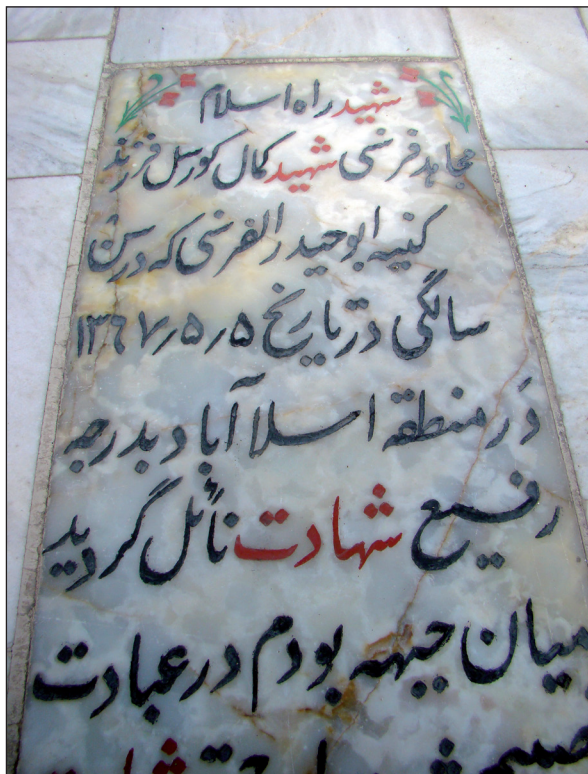 شهید راه اسلام
مجاهد فرنسی شهید کمال کورسل فرزند
کنیه ابوحیدر الفرنسی که در سن
سالگی در تاریخ ۱۳۶۷٫۵٫۵
در منطقه اسلاآباد بدرجه
رفیع شهادت نائل گردید
میان جبهه بودم در عبادت